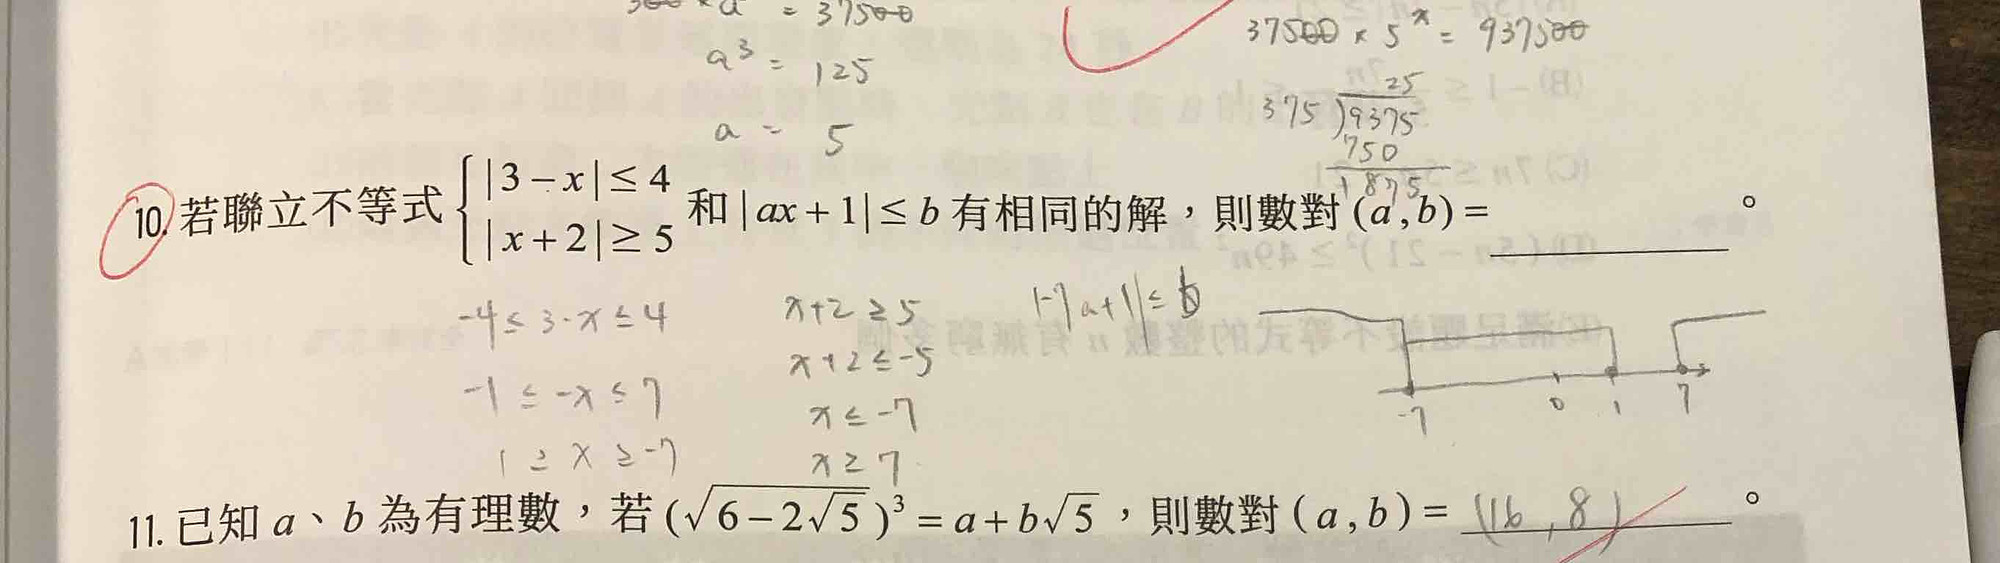 300 × a³ = 37500
a³ = 125
a = 5
37500 × 5ˣ = 937500
25
375 ) 9375
750
1875
10. 若聯立不等式 { |3-x| ≤ 4 |x+2| ≥ 5 和 |ax+1| ≤ b 有相同的解，則數對 (a,b) = ______。
-4 ≤ 3-x ≤ 4
-1 ≤ -x ≤ 7
1 ≥ x ≥ -7
x+2 ≥ 5
x+2 ≤ -5
x ≤ -7
x ≥ 7
|-7a+1| ≤ b
-7 0 1 7
11. 已知 a、b 為有理數，若 (√(6-2√5))³ = a+b√5，則數對 (a,b) = (16,8)。